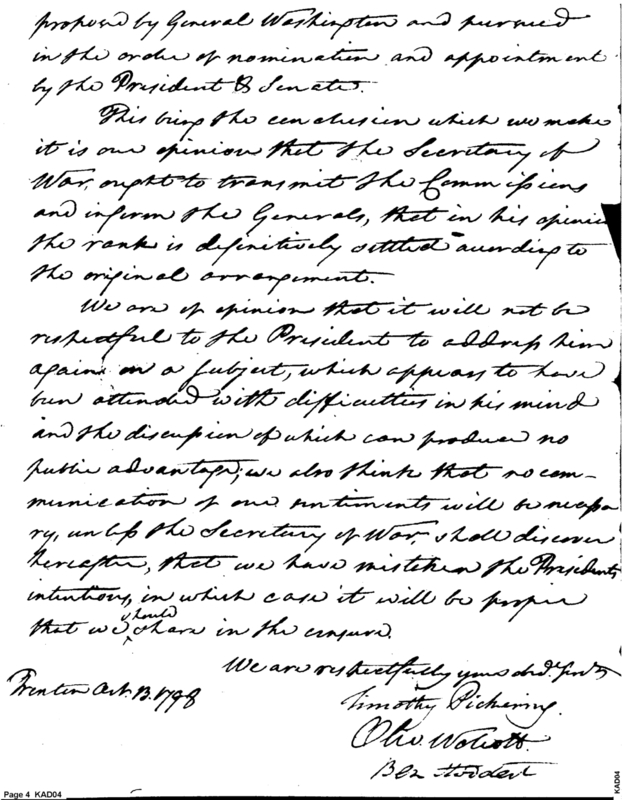 proposed by General Washington and pursued
in the order of nomination and appointment
by the President & Senate.
This being the conclusion which we make
it is our opinion that the Secretary of
War, ought to transmit the Commissions
and inform the Generals, that in his opinion
the rank is definitively settled according to
the original arrangement.
We are of opinion that it will not be
respectful to the President to address him
again on a subject, which appears to have
been attended with difficulties in his mind
and the discussion of which can produce no
public advantage; we also think that no com-
munication of our sentiments will be necessa
ry, unless the Secretary of War, shall discover
hereafter, that we have mistaken the Presidents
intentions, in which case it will be proper
that we should share in the censure.
We are respectfully yours
Trenton Oct. 13. 1798
Timothy Pickering.
Oliv. Wolcott.
Ben Stoddert
Page 4 KAD04
KAD04